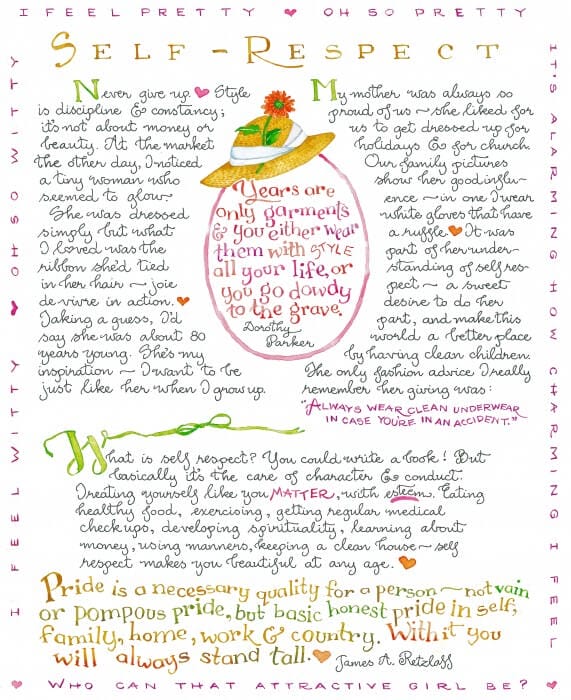 I FEEL PRETTY ♥ OH SO PRETTY
SELF-RESPECT
Never give up. ♥ Style
is discipline & constancy;
it's not about money or
beauty. At the market
the other day, I noticed
a tiny woman who
seemed to glow.
She was dressed
simply but what
I loved was the
ribbon she'd tied
in her hair ~ joie
de vivre in action. ♥
Taking a guess, I'd
say she was about 80
years young. She's my
inspiration ~ I want to be
just like her when I grow up.
Years are
only garments
& you either wear
them with STYLE
all your life, or
you go dowdy
to the grave.
Dorothy
Parker
My mother was always so
proud of us ~ she liked for
us to get dressed up for
holidays & for church.
Our family pictures
show her good influ-
ence ~ in one I wear
white gloves that have
a ruffle. ♥ It was
part of her under-
standing of self res-
pect ~ a sweet
desire to do her
part, and make this
world a better place
by having clean children.
The only fashion advice I really
remember her giving was:
"ALWAYS WEAR CLEAN UNDERWEAR
IN CASE YOU'RE IN AN ACCIDENT."
What is self respect? You could write a book! But
basically it's the care of character & conduct.
Treating yourself like you MATTER, with esteem. Eating
healthy food, exercising, getting regular medical
checkups, developing spirituality, learning about
money, using manners, keeping a clean house ~ self
respect makes you beautiful at any age. ♥
Pride is a necessary quality for a person ~ not vain
or pompous pride, but basic honest pride in self,
family, home, work & country. With it you
will always stand tall. ♥ James A. Retclaff
IT'S ALARMING HOW CHARMING I FEEL
♥ WHO CAN THAT ATTRACTIVE GIRL BE? ♥
I FEEL WITTY ♥ OH SO WITTY